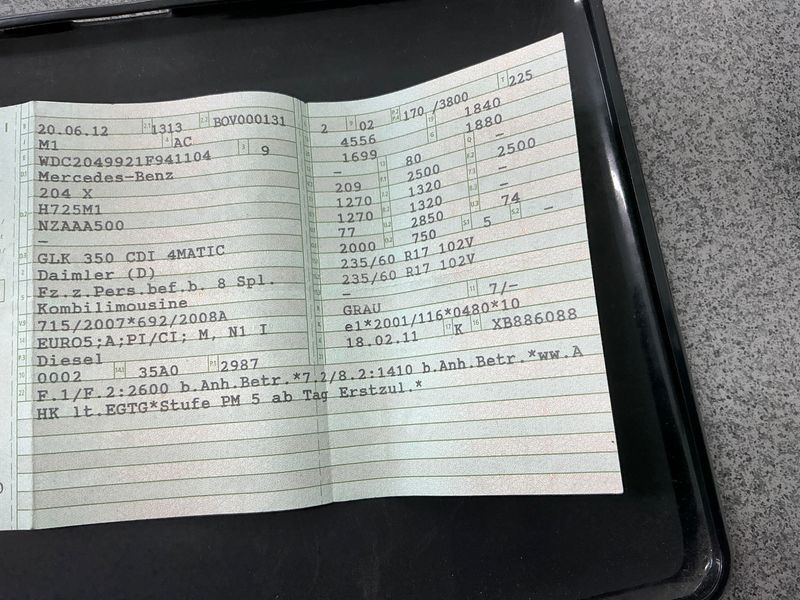 20.06.12 1313 BOV000131
M1 AC
WDC2049921F941104 9
Mercedes-Benz
204 X
H725M1
NZAAA500
–
GLK 350 CDI 4MATIC
Daimler (D)
Fz.z.Pers.bef.b. 8 Spl.
Kombilimousine
715/2007*692/2008A
EURO5;A;PI/CI; M, N1 I
Diesel
0002 35A0 2987
2 02 170 /3800 225
4556 1840
1699 1880
– 80 –
209 2500 2500
1270 1320 –
1270 1320 –
77 2850 74
2000 750 5 –
235/60 R17 102V
235/60 R17 102V
–
GRAU 7/–
e1*2001/116*0480*10
18.02.11 K XB886088
F.1/F.2:2600 b.Anh.Betr.*7.2/8.2:1410 b.Anh.Betr.*ww.A
HK lt.EGTG*Stufe PM 5 ab Tag Erstzul.*